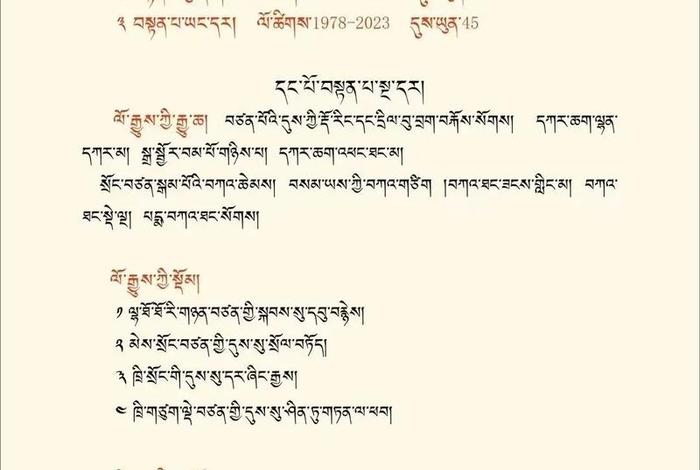 ༣ བསྟན་པ་ཡང་དར། ལོ་ཚིགས་1978-2023 དུས་ཡུན་45
དང་པོ་བསྟན་པ་སྔ་དར།
ལོ་རྒྱུས་ཀྱི་རྒྱུ་ཆ། བཙན་པོའི་དུས་ཀྱི་རྡོ་རིང་དང་དྲིལ་བུ་བྲག་བརྐོས་སོགས། དཀར་ཆག་ལྷན་
དཀར་མ། སྒྲ་སྦྱོར་བམ་པོ་གཉིས་པ། དཀར་ཆག་འཕང་ཐང་མ།
སྲོང་བཙན་སྒམ་པོའི་བཀའ་ཆེམས། བསམ་ཡས་ཀྱི་བཀའ་གཙིག །བཀའ་ཐང་ཟངས་གླིང་མ། བཀའ་
ཐང་སྡེ་ལྔ། པདྨ་བཀའ་ཐང་སོགས།
ལོ་རྒྱུས་ཀྱི་སྡོམ།
༡ ལྷ་ཐོ་ཐོ་རི་གཉན་བཙན་གྱི་སྐབས་སུ་དབུ་བརྙེས།
༢ མེས་སྲོང་བཙན་གྱི་དུས་སུ་སྲོལ་བཏོད།
༣ ཁྲི་སྲོང་གི་དུས་སུ་དར་ཞིང་རྒྱས།
༤ ཁྲི་གཙུག་ལྡེ་བཙན་གྱི་དུས་སུ་ཤིན་ཏུ་གཏན་ལ་ཕབ།